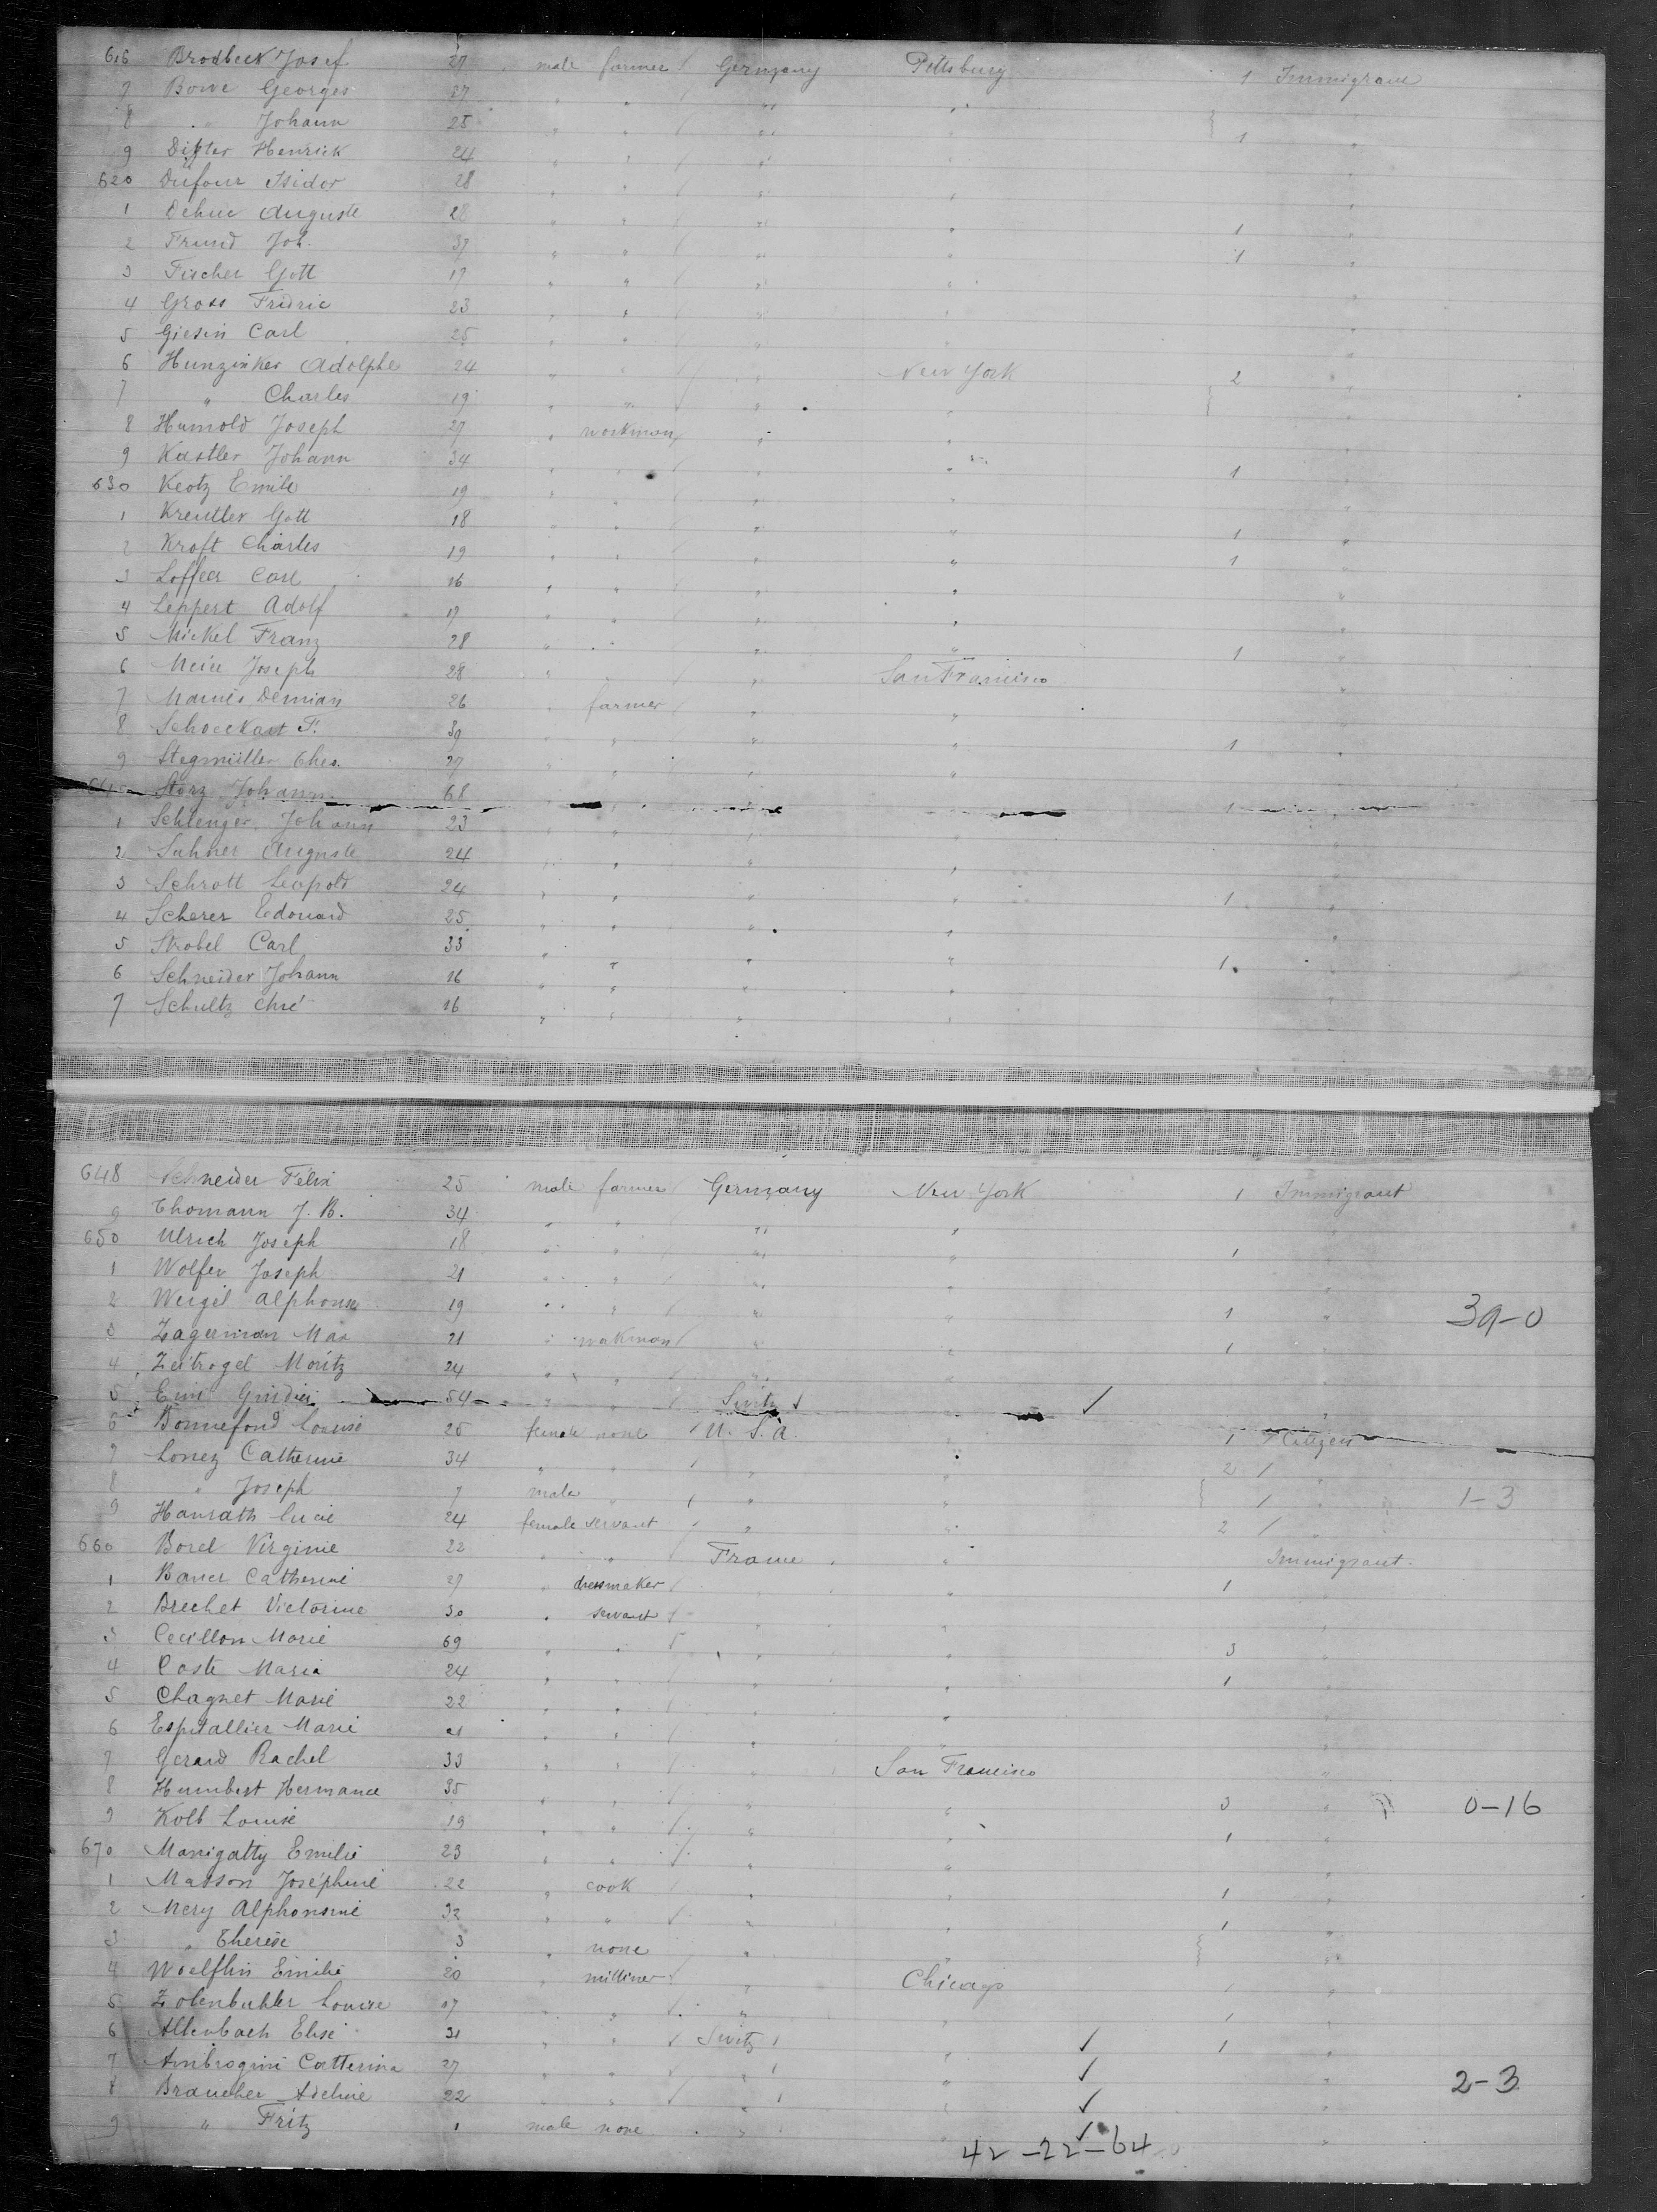 616 Brodbeck Josef 27 male farmer / Germany Pittsburg 1 Immigrant
7 Bowe Georges 37 " " / " "
8 " Johann 25 " " / " " 1 "
9 Henrick 24 " " / " " "
620 Dufour Isidor 28 " " / " " "
1 Auguste 28 " " / " " 1 "
2 Frund Joh. 37 " " / " " 1 "
3 Fischer Gott 17 " " / " " "
4 Gross Fridric 23 " " / " " "
5 Giesin Carl 25 " " / " " "
6 Hunzinker Adolphe 24 " " / " New York 2 "
7 " Charles 19 " " / " " "
8 Humold Joseph 27 " workman / " " "
9 Kastler Johann 34 " " / " " 1 "
630 Keotz Emile 19 " " / " " "
1 Kreutler Gott 18 " " / " " 1 "
2 Kroft Charles 19 " " / " " 1 "
3 Loffler Carl 16 " " / " " "
4 Leppert Adolf 17 " " / " " "
5 Mickel Franz 28 " " / " " 1 "
6 Meier Joseph 28 " " / " San Francisco "
7 Demian 26 " farmer / " " "
8 Schoeckart F. 39 " " / " " 1 "
9 Stegmüller Chas. 27 " " / " " "
640 Storz Johann 68 " " " " 1 "
1 Schlenger Johann 23 " " " " "
2 Suhner Auguste 24 " " " " "
3 Schrott Leopold 24 " " " " 1 "
4 Scherer Edouard 25 " " " " "
5 Strobel Carl 33 " " " " 1 "
6 Schneider Johann 16 " " " " "
7 Schultz Chré 16 " " " "
648 Schneider Félix 25 male farmer / Germany New York 1 Immigrant
9 Thomann J. B. 34 " " " " "
650 Ulrich Joseph 18 " " / " " 1 "
1 Wolfer Joseph 21 " " / " " "
2 Weigel Alphonse 19 " " / " " 1 " 39-0
3 Zagerman Max 21 " wokman / " " 1 "
4 Zeitvogel Moritz 24 " " / " " "
5 54 " " / Switz / " ✓ "
6 Bonnefond Louise 25 female none / U. S. A. " 1 / Citizen
7 Lorrez Catherine 34 " " / " " 2 / "
8 " Joseph 7 male " / " " / " 1-3
9 Hanrath Lucie 24 female servant / " " 2 / "
660 Borel Virginie 22 " " France " Immigrant.
1 Bauer Catherine 27 " dressmaker / " " 1 "
2 Brechet Victorine 30 " servant / " " "
3 Cecillon Marie 69 " " / " " 3 "
4 Coste Maria 24 " " / " " 1 "
5 Chagnet Marie 22 " " / " " "
6 Espitallier Marie 21 " " / " " "
7 Gerard Rachel 33 " " / " San Francisco "
8 Humbert Hermance 35 " " / " " 3 " 0-16
9 Kolb Louise 19 " " / " " 1 "
670 Manigatty Emilie 23 " " / " " "
1 Masson Joséphine 22 " cook / " " 1 "
2 Mery Alphonsine 32 " " / " " 1 "
3 " Therese 3 " none " " "
4 Woelflin Emilie 20 " milliner / " Chicago 1 "
5 Zolenbuhler Louise 17 " " / " " 1 "
6 Altenbach Elise 31 " " / Switz / " ✓ 1 "
7 Ambrogini Catterina 27 " " / " / " ✓ " 2-3
8 Braucher Adeline 22 " " / " / " ✓ "
9 " Fritz 1 male none " / " ✓ "
42-22-64